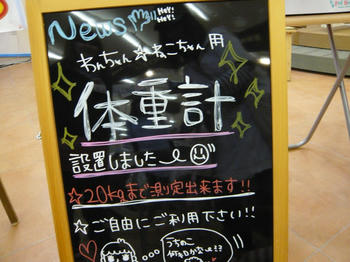 News HEY! HEY!
わんちゃん☆ねこちゃん用
体重計
設置しました
☆20kgまで測定出来ます!!
☆ご自由にご利用下さい!!
うちのこ
何キロかな…!?